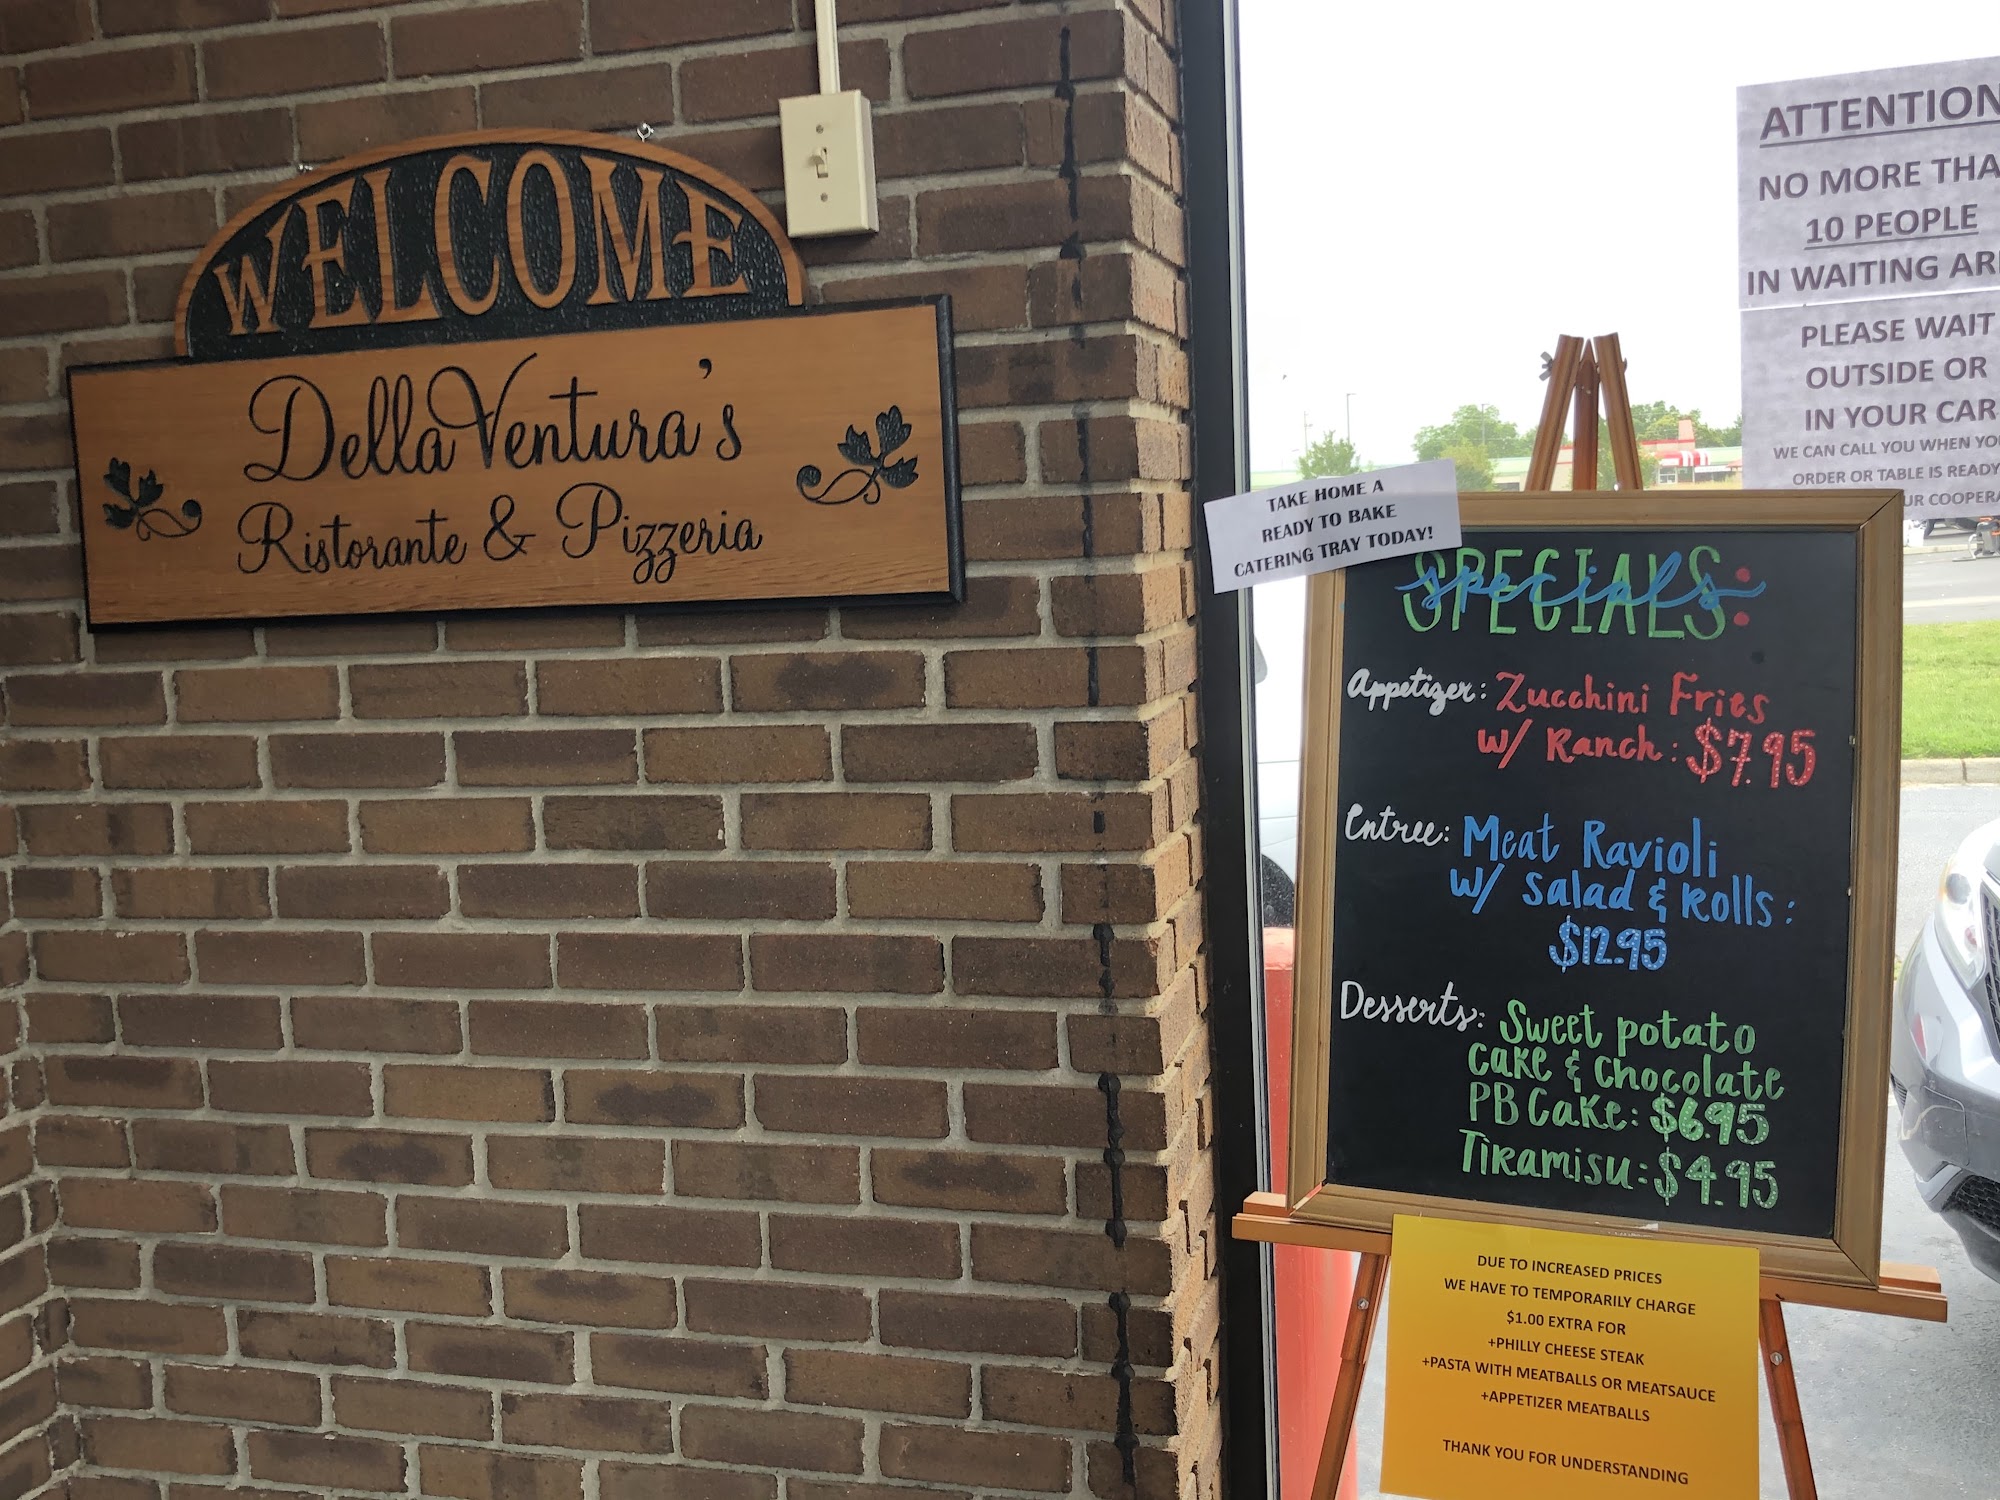 WELCOME
DellaVentura's
Ristorante & Pizzeria
ATTENTION
NO MORE
10 PEOPLE
IN WAITING
PLEASE WAIT
OUTSIDE OR
IN YOUR CAR
WE CAN CALL YOU WHEN
ORDER OR TABLE IS READY
TAKE HOME A
READY TO BAKE
CATERING TRAY TODAY!
SPECIALS:
specials
Appetizer: Zucchini Fries
w/ Ranch: $7.95
Entree: Meat Ravioli
w/ Salad & Rolls:
$12.95
Desserts: Sweet potato
Cake & Chocolate
PB Cake: $6.95
Tiramisu: $4.95
DUE TO INCREASED PRICES
WE HAVE TO TEMPORARILY CHARGE
$1.00 EXTRA FOR
+PHILLY CHEESE STEAK
+PASTA WITH MEATBALLS OR MEATSAUCE
+APPETIZER MEATBALLS
THANK YOU FOR UNDERSTANDING